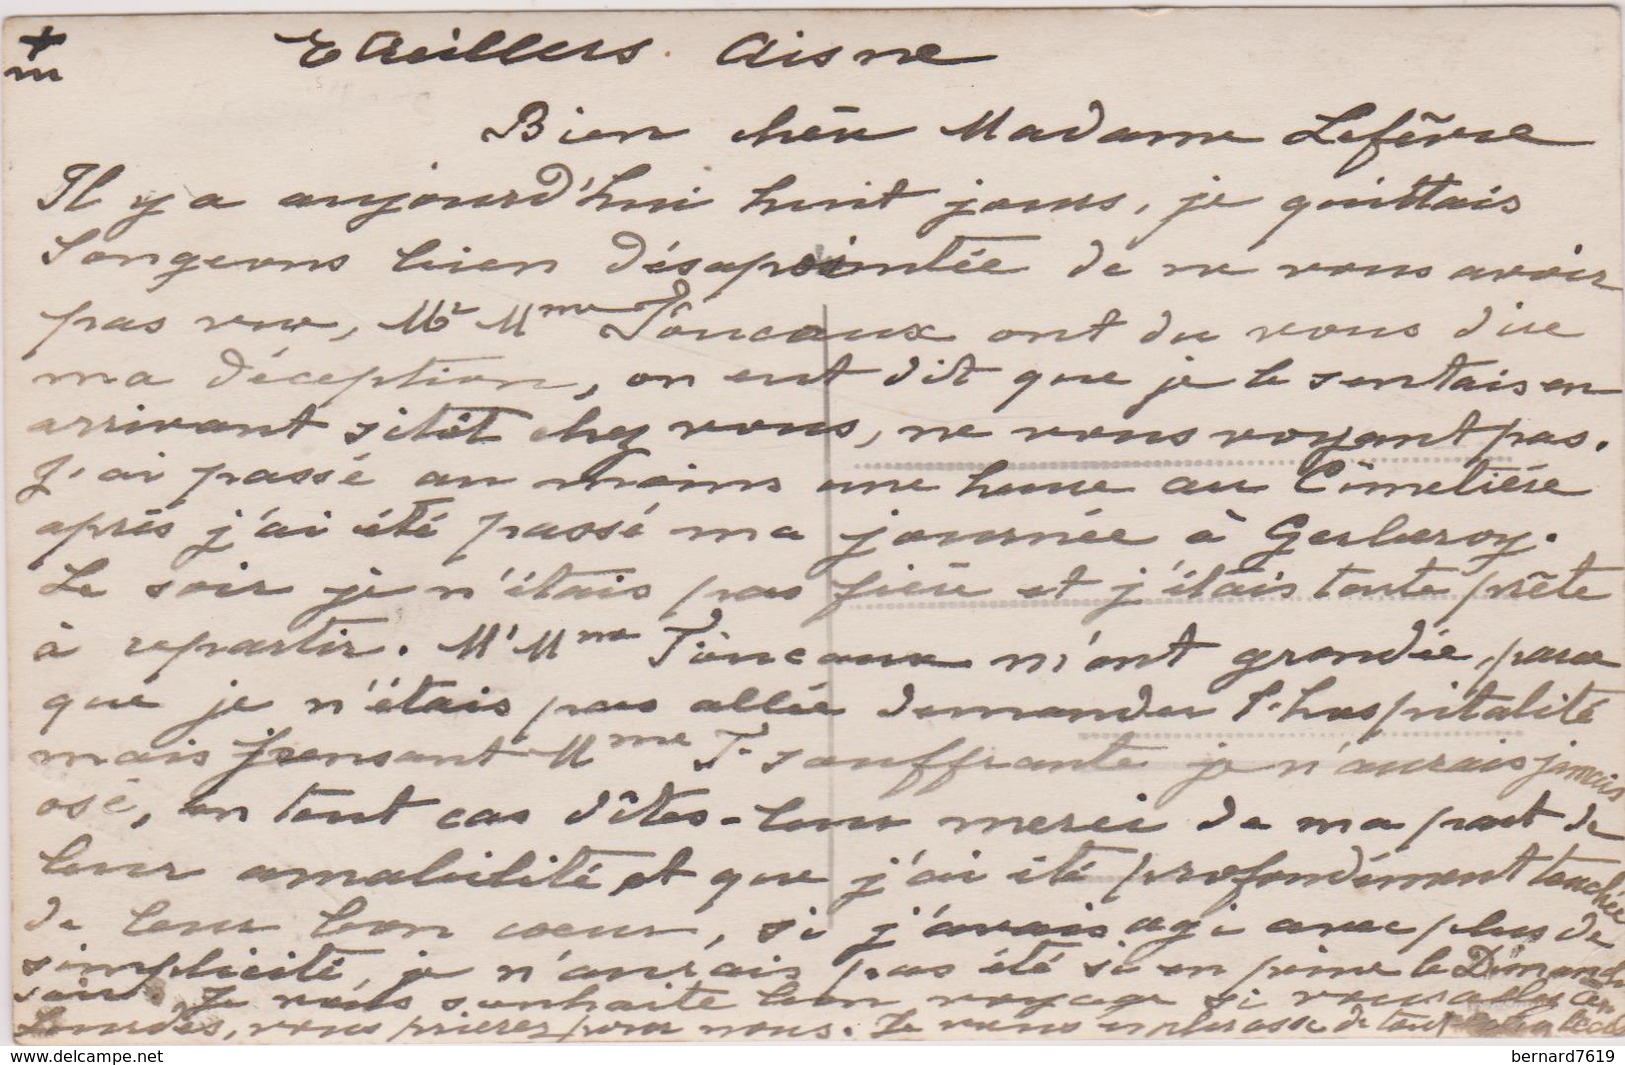 +
m
Etreillers. Aisne
Bien chère Madame Lefèvre
Il y a aujourd'hui huit jours, je quittais
Songeons bien désapointée de ne vous avoir
pas vue, Mr Mme Tiuceaux ont du vous dire
ma déception, on eut dit que je le sentais en
arrivant sitôt chez vous, ne vous voyant pas.
J'ai passé au moins une heure au Cimetière
après j'ai été passé ma journée à Gerberoy.
Le soir je n'étais pas fière et j'étais toute prête
à repartir. Mr Mme m'ont grondée, parce
que je n'étais pas allée demander l'hospitalité
mais pensant Mme T. souffrante je n'aurais jamais
osé, en tout cas dîtes-leur merci de ma part de
leur amabilité et que j'ai été profondément touchée
de leur bon coeur, si j'avais agi avec plus de
simplicité, je n'aurais pas été si en peine le Dimanche
soir. Je vous souhaite bon voyage si vous allez à
Lourdes, vous prierez pour nous. Je vous embrasse de tout
delcampe.net
bernard7619